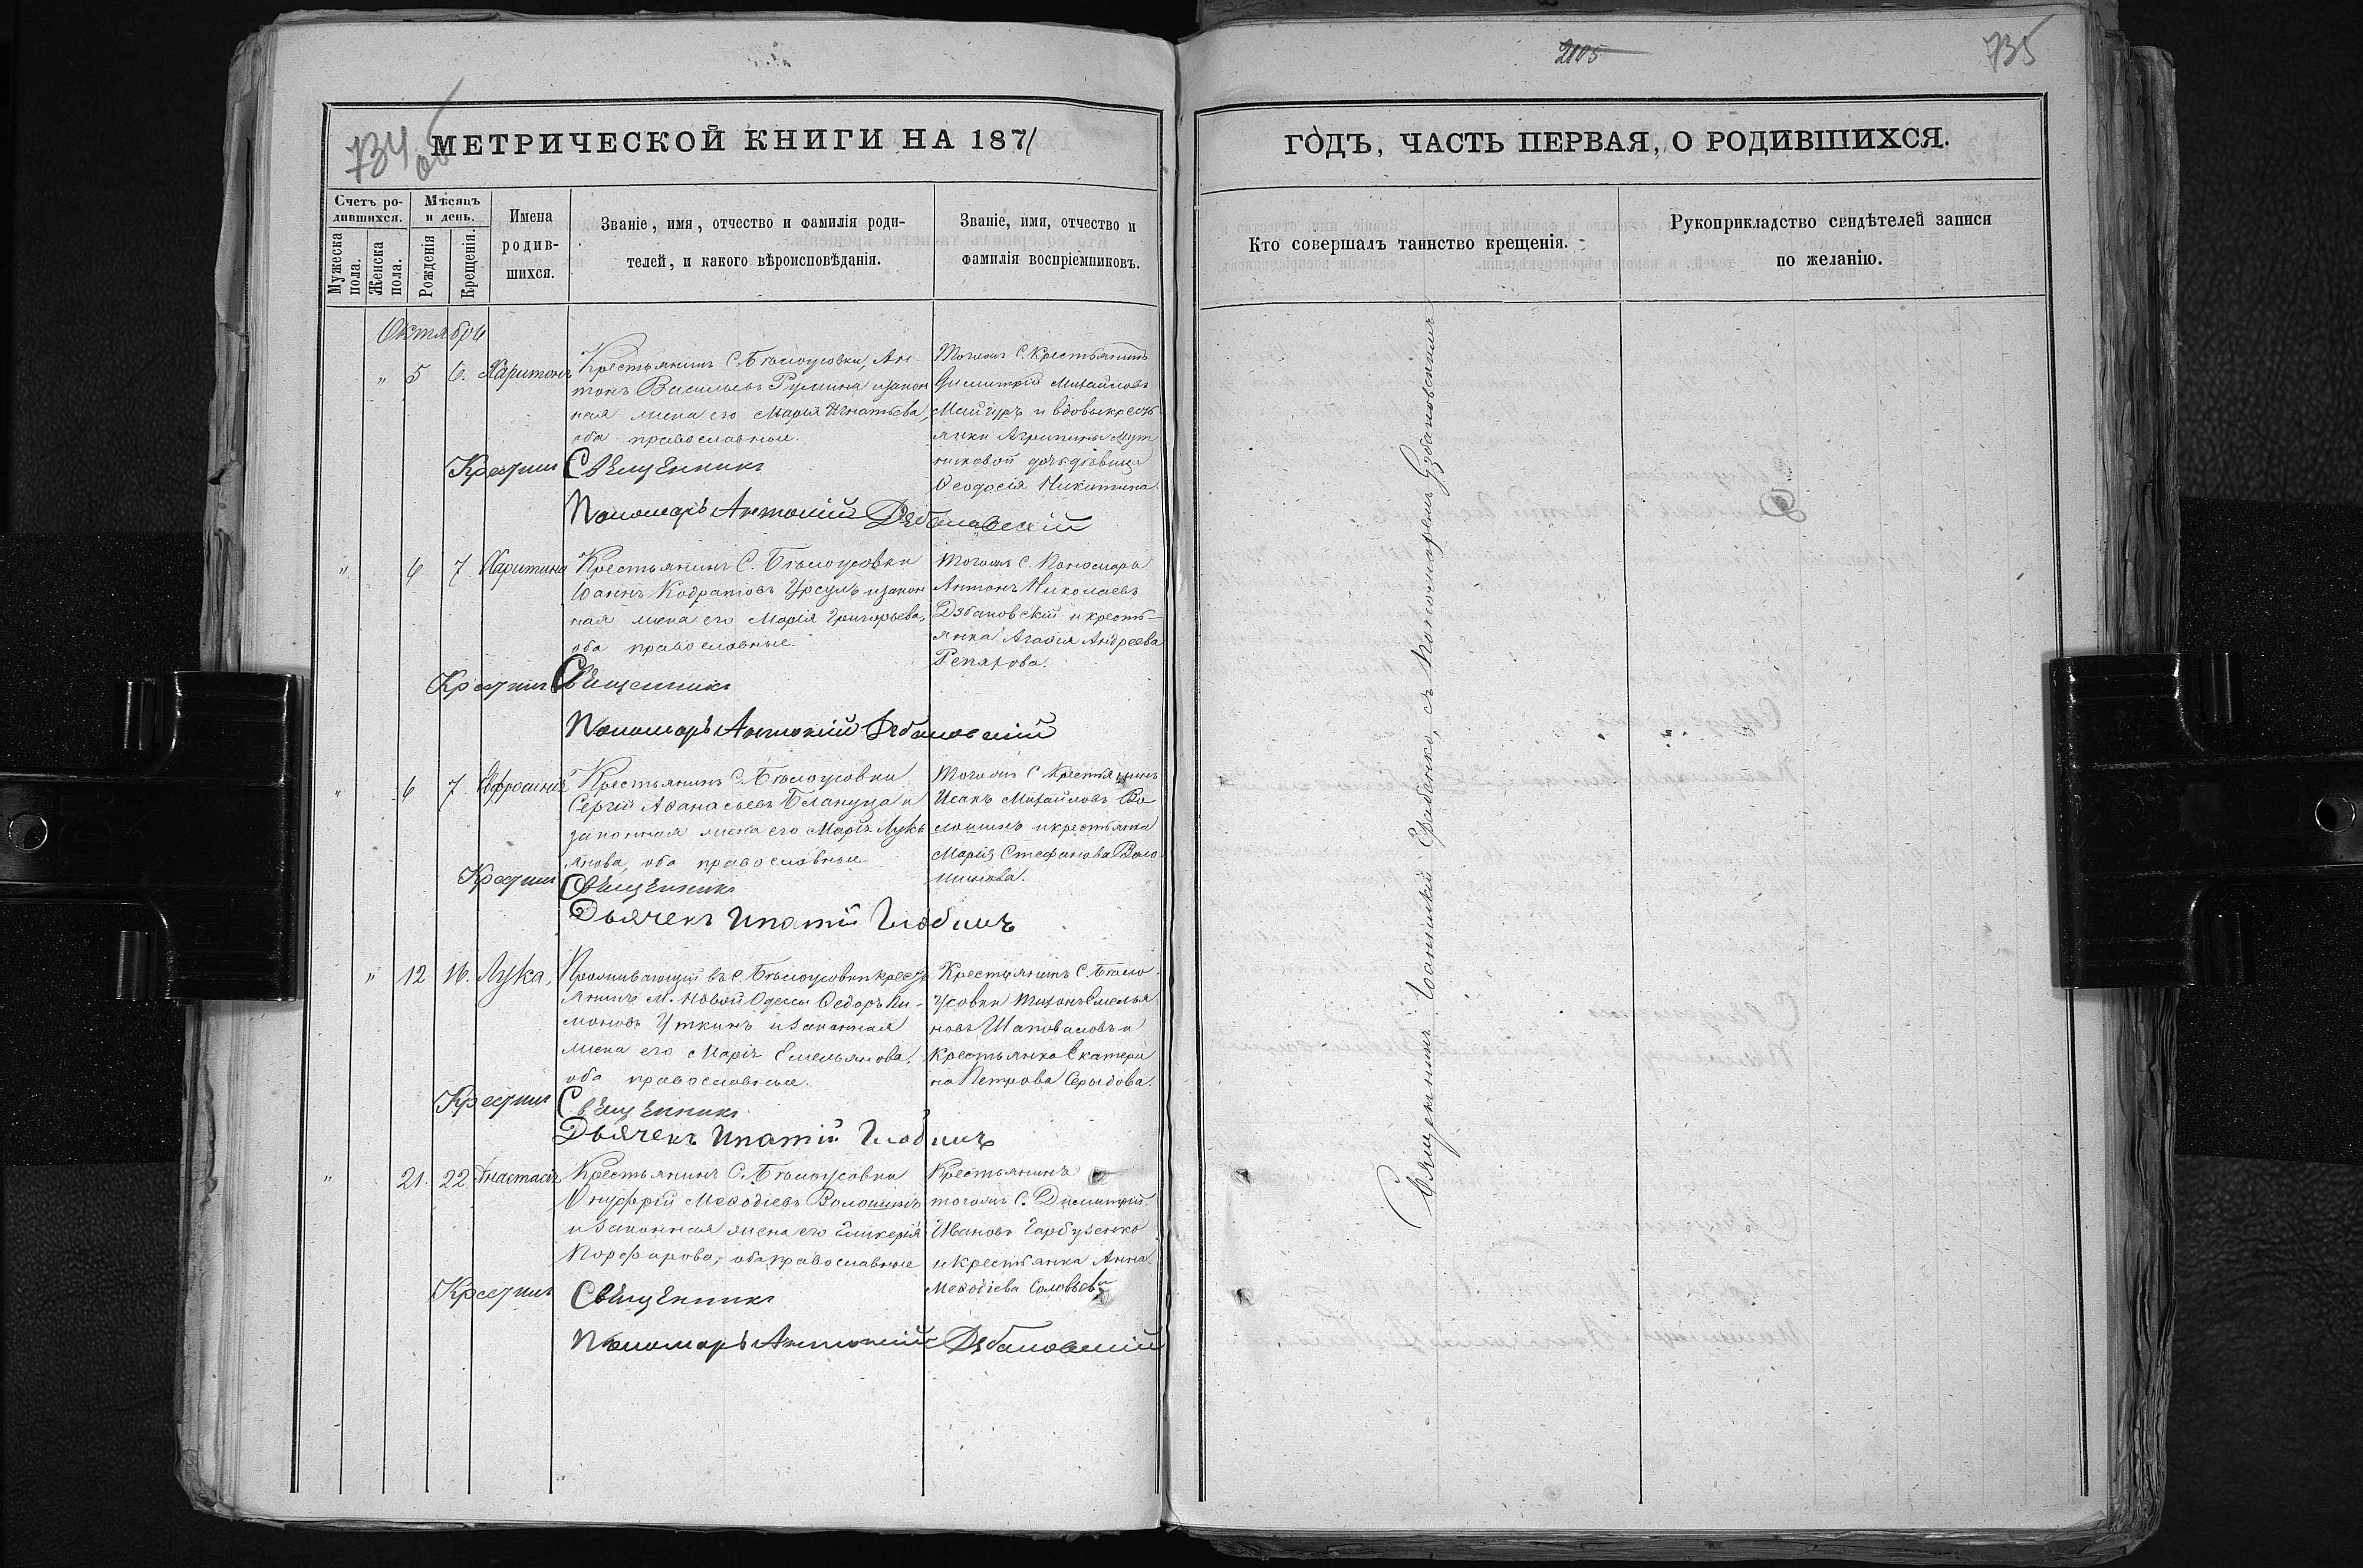 734 об
МЕТРИЧЕСКОЙ КНИГИ НА 1871
Счетъ ро-
дившихся.
Мужеска
пола.
Женска
пола.
Мѣсяцъ
и день.
Рожденія
Крещенія.
Имена
родив-
шихся.
Званіе, имя, отчество и фамилія роди-
телей, и какого вѣроисповѣданія.
Званіе, имя, отчество и
фамилія воспріемниковъ.
Октября
" 5 6. Харитонъ
Крестьянинъ С. Бѣлоусовки, Ан
тонъ Васильевъ и закон
ная жена его Марія Игнатьева,
оба православные.
Тогожъ С. Крестьянинъ
Димитрій Михайловъ
Майгуръ и вдовы крест
янки Агрипины
дочь дѣвица
Ѳеодосія Никитина.
Крестилъ Священникъ
Пономарь Антоній Дзбановскій
" 6 7. Харитина
Крестьянинъ С. Бѣлоусовки
Іоаннъ Кодратовъ Урсулъ и закон
ная жена его Марія Григорьева,
оба православные.
Тогожъ С. Пономарь
Антонъ Николаевъ
Дзбановскій и кресть-
янка Агафія Андреева
Репяхова.
Крестилъ Священникъ
Пономарь Антоній Дзбановскій
" 6 7. Евфросинія
Крестьянинъ С. Бѣлоусовки
Сергій Аѳанасьевъ Блануца и
законная жена его Марія Лукь
янова, оба православные.
Тогожъ С Крестьянинъ
Исакъ Михайловъ Во
лошинъ и крестьянка
Марія Стефанова Воло
шинова.
Крестилъ Священникъ
Дьячекъ Ипатій
" 12 16. Лука,
Проживающій въ С. Бѣлоусовки крест
янинъ м. Новой Одессы Ѳедоръ Ни-
моновъ Уткинъ и законная
жена его Марія Емельянова,
оба православные.
Крестьянинъ С. Бѣло
усовки Тихонъ Емелья
новъ Шаповаловъ и
крестьянка Екатери
на Петрова Серыдова.
Крестилъ Священникъ
Дьячекъ Ипатій
" 21. 22. Анастасія
Крестьянинъ С. Бѣлоусовки
Онуфрій Меѳодіевъ Волошинъ
и законная жена его Гликерія
Порфирова, оба православные
Крестьянинъ
тогожъ С. Димитрій
Ивановъ Гарбузенко
и крестьянка Анна
Меѳодіева Соловьева
Крестилъ Священникъ
Пономарь Антоній Дзбановскій
2105
735
ГОДЪ, ЧАСТЬ ПЕРВАЯ, О РОДИВШИХСЯ.
Кто совершалъ таинство крещенія.
Рукоприкладство свидѣтелей записи
по желанію.
Священникъ Іоанникій Грабенко, съ Пономаремъ Дзбановскимъ